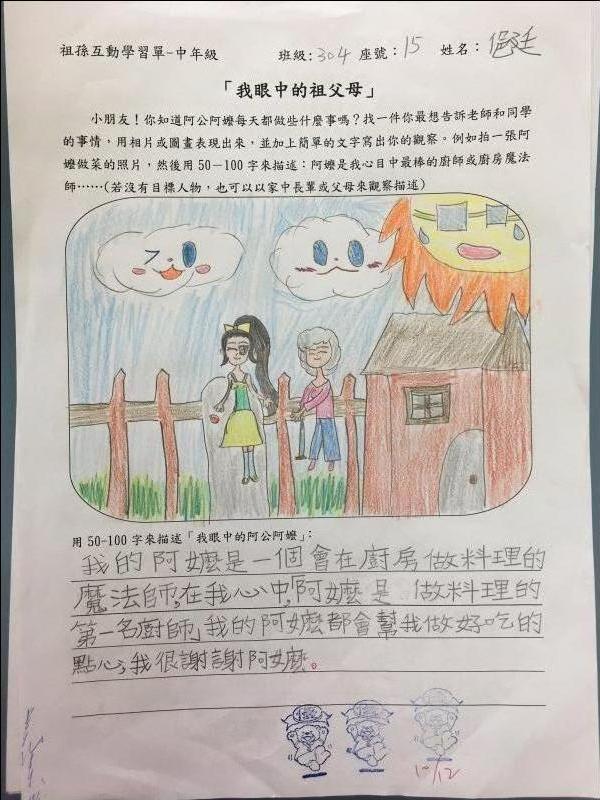 祖孫互動學習單-中年級 班級:304 座號:15 姓名:
「我眼中的祖父母」
小朋友!你知道阿公阿嬤每天都做些什麼事嗎?找一件你最想告訴老師和同學
的事情,用相片或圖畫表現出來,並加上簡單的文字寫出你的觀察。例如拍一張阿
嬤做菜的照片,然後用50-100字來描述:阿嬤是我心目中最棒的廚師或廚房魔法
師……(若沒有目標人物,也可以以家中長輩或父母來觀察描述)
用 50-100 字來描述「我眼中的阿公阿嬤」:
我的阿嬤是一個會在廚房做料理的
魔法師,在我心中,阿嬤是 做料理的
第一名廚師,我的阿嬤都會幫我做好吃的
點心,我很謝謝阿嬤。
10/12